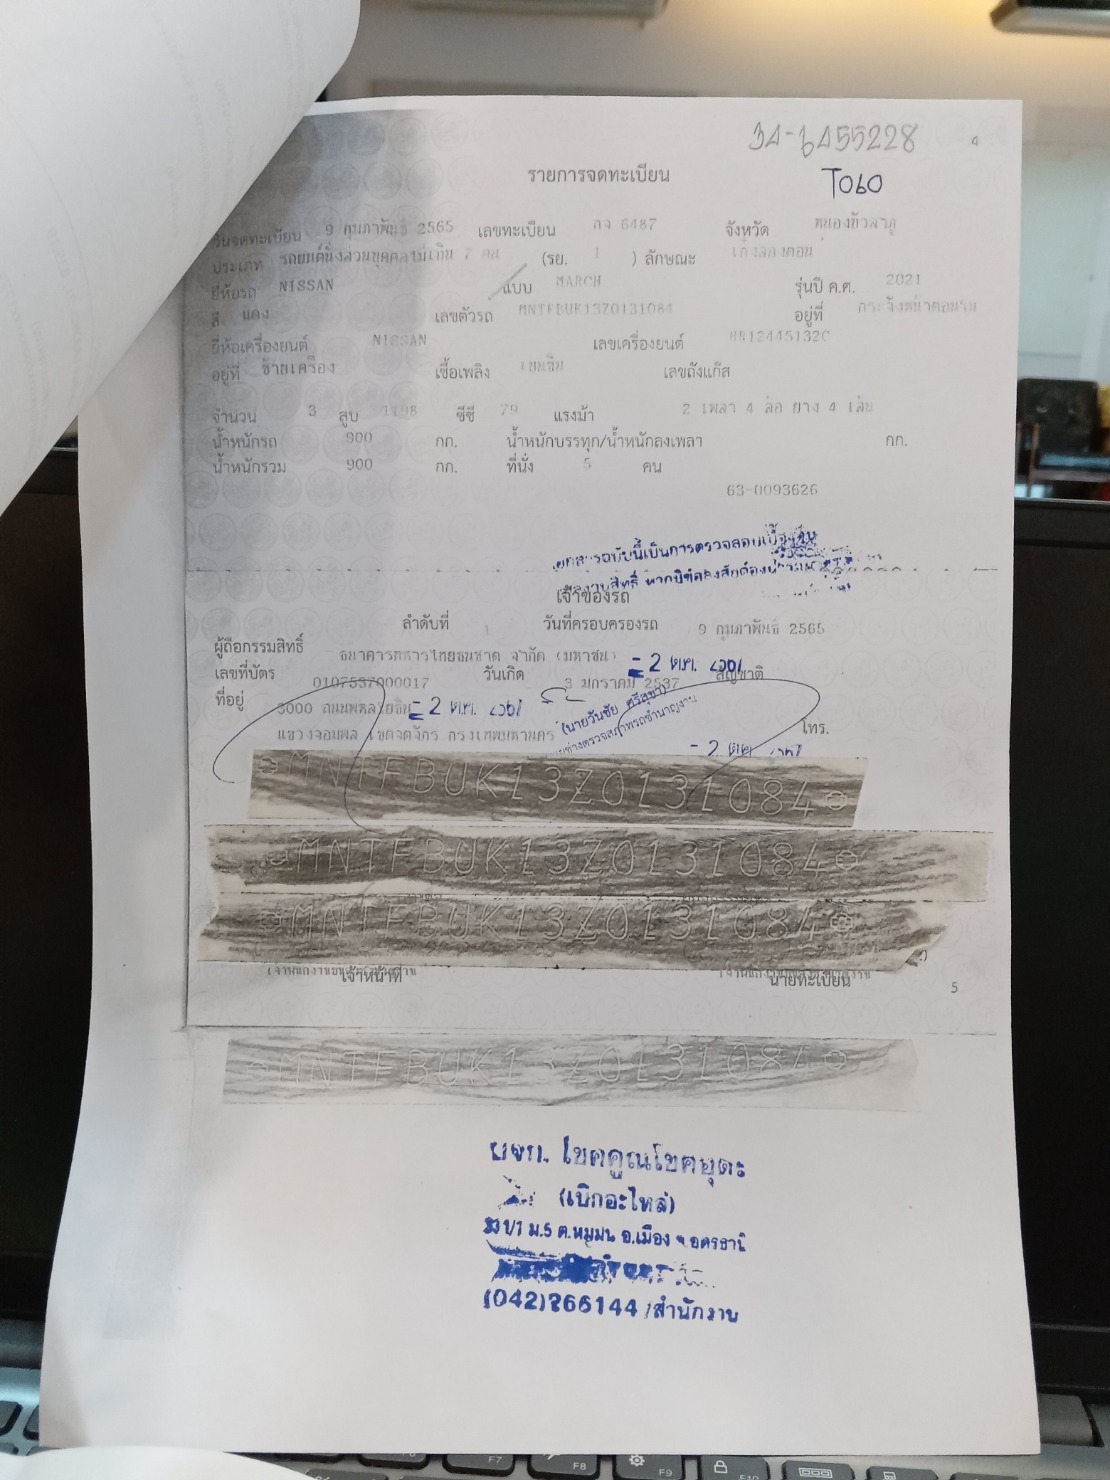 34-6455228
4
รายการจดทะเบียน
T060
วันจดทะเบียน 9 กุมภาพันธ์ 2565 เลขทะเบียน กจ 6487 จังหวัด หนองบัวลำภู
ประเภท รถยนต์นั่งส่วนบุคคลไม่เกิน 7 คน (รย. 1 ) ลักษณะ เก๋งสองตอน
ยี่ห้อรถ NISSAN แบบ MARCH รุ่นปี ค.ศ. 2021
สี แดง เลขตัวรถ MNTFBUK13Z0131084 อยู่ที่
ยี่ห้อเครื่องยนต์ NISSAN เลขเครื่องยนต์ HR12445132C
อยู่ที่ ซ้ายเครื่อง เชื้อเพลิง เบนซิน เลขถังแก๊ส
จำนวน 3 สูบ 1198 ซีซี 79 แรงม้า 2 เพลา 4 ล้อ ยาง 4 เส้น
น้ำหนักรถ 900 กก. น้ำหนักบรรทุก/น้ำหนักลงเพลา กก.
น้ำหนักรวม 900 กก. ที่นั่ง 5 คน
63-0093626
เอกสารฉบับนี้เป็นการตรวจสอบเบื้องต้น
หากมีข้อสงสัยต้อง
เจ้าของรถ
ลำดับที่ 1 วันที่ครอบครองรถ 9 กุมภาพันธ์ 2565
ผู้ถือกรรมสิทธิ์ ธนาคารทหารไทยธนชาต จำกัด (มหาชน) - 2 ต.ค. 2567
เลขที่บัตร 0107537000017 วันเกิด 3 มกราคม 2537 สัญชาติ
ที่อยู่ 3000 ถนนพหลโยธิน - 2 ต.ค. 2567 (นายวันชัย ศรีสุชา)
แขวงจอมพล เขตจตุจักร กรุงเทพมหานคร นายช่างตรวจสภาพรถชำนาญงาน โทร.
- 2 ต.ค. 2567
MNTFBUK13Z0131084
MNTFBUK13Z0131084
MNTFBUK13Z0131084
เจ้าหน้าที่ นายทะเบียน
5
MNTFBUK13Z0131084
หจก. โชคคูณโชคอุดะ
(เบิกอะไหล่)
ม.5 ต.หมูม่น อ.เมือง จ.อุดรธานี
(042)266144 /สำนักงาน